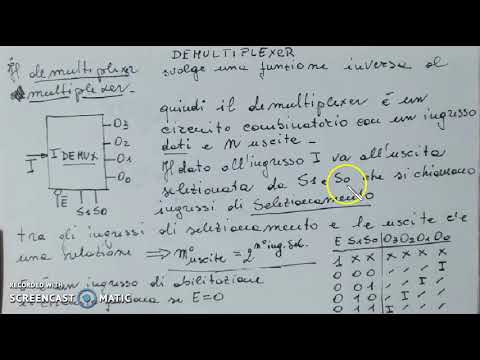 DEMULTIPLEXER
Il demultiplexer svolge una funzione inversa al
multiplexer.
quindi il demultiplexer é un
circuito combinatorio con un ingresso
dati e N uscite.
Il dato all'ingresso I va all'uscita
selezionata da S1 e S0 che si chiamano
ingressi di Selezionamento
I
I DEMUX
O3
O2
O1
O0
E S1 S0
tra gli ingressi di selezionamento e le uscite c'é
una relazione ⇒ n° uscite = 2^n° ing. sel.
é un ingresso di abilitazione
se E=0
E S1 S0 O3 O2 O1 O0
1 X X X X X X
0 0 0 / / / I
0 0 1 / / I /
0 1 0 / I
RECORDED WITH
SCREENCAST MATIC